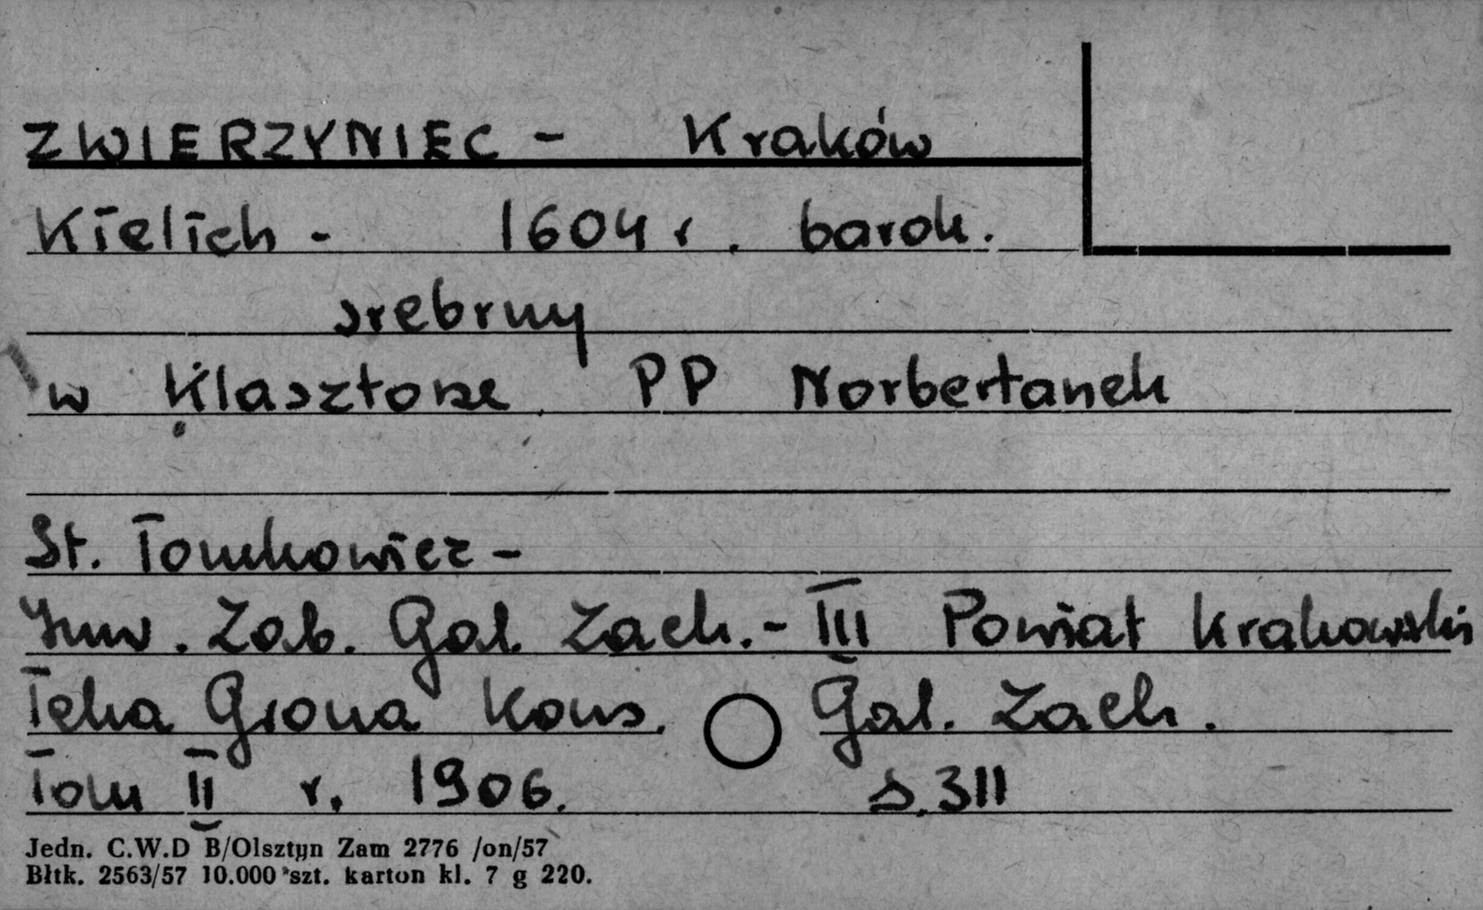 ZWIERZYNIEC - Kraków
Kielich - 1604 r. barok.
srebrny
w Klasztorze PP Norbertanek
St. Tomkowicz -
Inw. Zab. Gal. Zach. - III Powiat Krakowski
Teka Grona Kons. Gal. Zach.
Tom II r. 1906. s. 311
Jedn. C.W.D B/Olsztyn Zam 2776 /on/57
Błtk. 2563/57 10.000 szt. karton kl. 7 g 220.